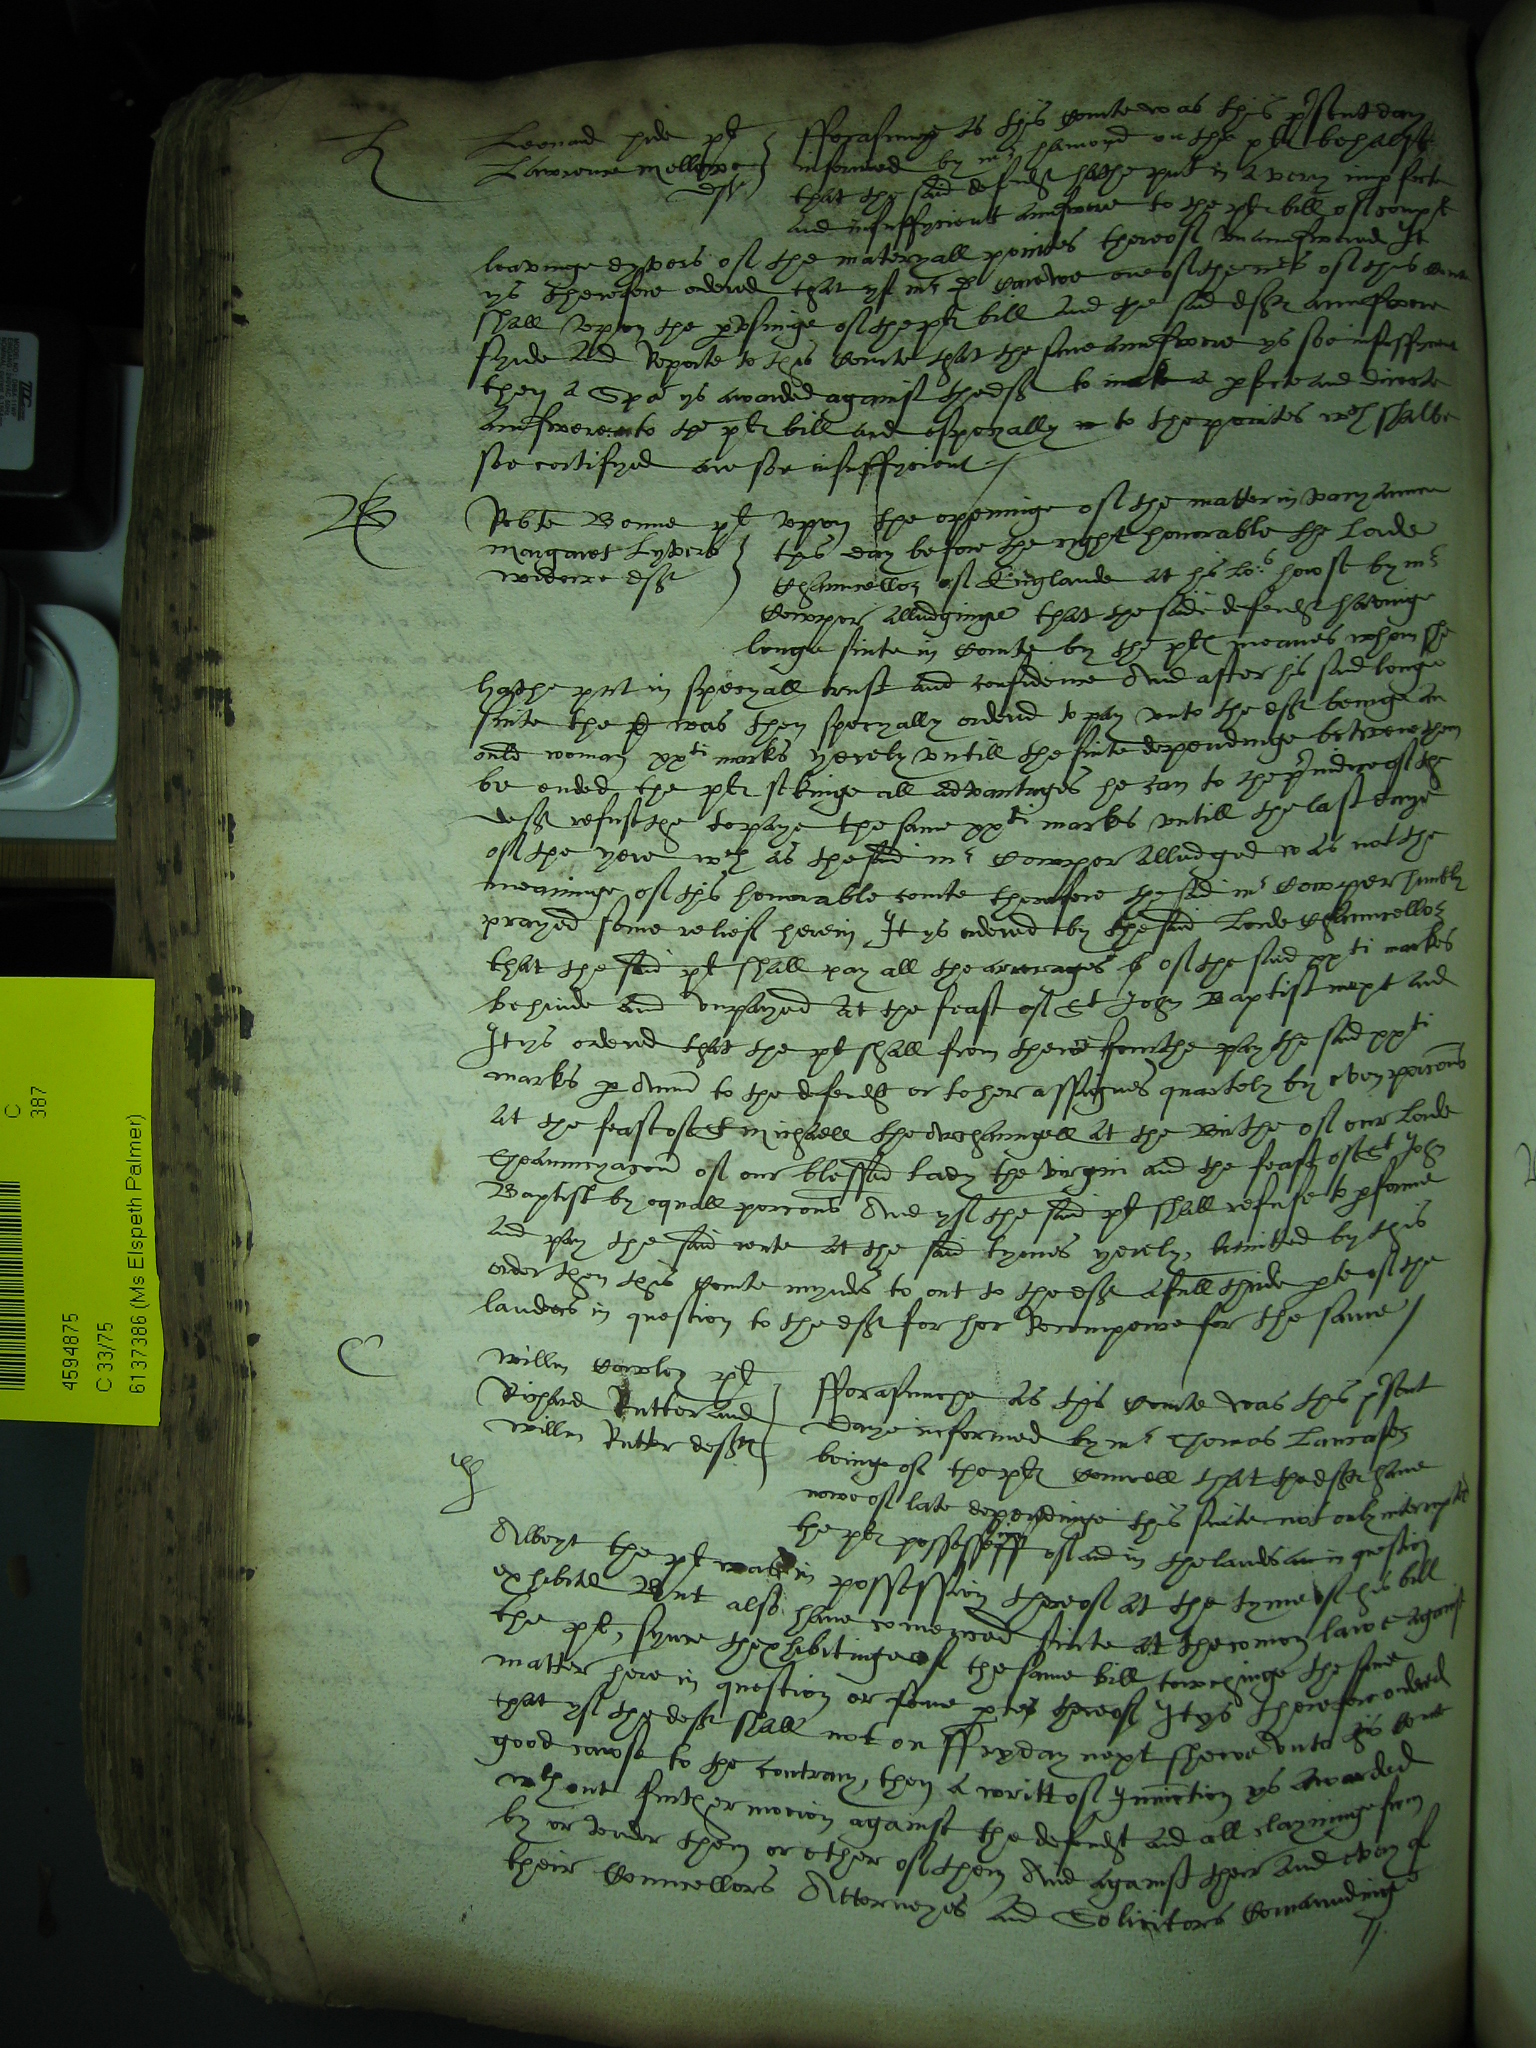 H
Leonard hide pl
Lawrence Mellowe
deft
fforasmuch as this Courte was this present day
informed by mr hamond on the pl behalfe
that the said defendt hathe put in a very imperfecte
and insuffycient answere to the pl bill of compl
leavinge dyvers of the materyall pointes thereof unanswered It
ys therefore ordered that yf mr D Carewe one of the mrs of this Courte
shall upon the perusinge of the pl bill and the said deft answere
fynde and Reporte to this Courte that the same answere ys soe insuffycient
then a Spa ys awarded against the deft to make a perfecte and directe
answere to the pl bill and espetyally to the pointes wch shalbe
soe certifyed are soe insuffycient /
B
Robte Bonne pl
Margaret Lyvers
widowe deft
Upon the openinge of the matter in varyaunce
this day before the right honorable the Lorde
Chauncellor of Englande at his Lo: howse by mr
Cowper alludginge that the saide defendt havinge
longe suite in Courte by the pl meanes whom she
hathe put in specyall trust and confidence And after his said longe
suite the pl was then specyally ordered to pay unto the deft beinge an
ould woman xxti marks yerely untill the suite dependinge betwene them
be ended, the pl sekinge all advantages he can to the prejudice of the
deft refusethe to paye the same xxti marks untill the last daye
of the yere wch as the said mr Cowper alludged was not the
meaninge of this honorable courte therefore the said mr Cowper humbly
prayed some relief herein It ys ordered by the said Lorde Chauncellor
that the said pl shall pay all the arrerages of the said xxti markes
behinde and unpayed at the feast of St John Baptist next and
It ys ordered that the pl shall from thencefourthe pay the said xxti
marks p Annu to the defendt or to her assignes quarterly by even porcons
at the feast of St Michaell the Archaungell at the Birthe of our Lorde
Thannuncyacon of our blessed Lady the virgin and the feast of St John
Baptist by equall porcons And yf the said pl shall refuse to performe
and pay the said rente at the said tymes yerely, limitted by this
order then this Courte mynds to out to the deft a full thirde pte of the
landes in question to the deft for her Recompence for the same /
C
Willm Cowley pl
Richard Rutter and
Willm Rutter defts
fforasmuche as this Courte was this present
daye informed by mr Thomas Lancaster
beinge of the pl Councell that the defts have
nowe of late dependinge this suite not only interrupted
the pl possession of and in the lands in question
Albeyt the pl was in possession thereof at the tyme of his bill
exhibited But also have comenced suite at the comon lawe against
the pl, synce thexhibitinge of the same bill towchinge the same
matter here in question or some ptes thereof It ys therefore ordered
that yf the deft shall not on ffryday next shewe unto this Court
good cawse to the contrary, then a writt of Iniunction ys awarded
wthout further mocion against the defendt and all clayminge from
by or under them or ether of them And against their and every of
their Councellors Attorneyes and Solicitors Comaundinge
//
C
387
4594875
C 33/75
6137386 (Ms Elspeth Palmer)